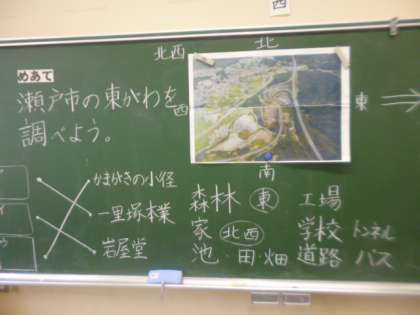 西
北西 北
めあて
瀬戸市の東がわを
調べよう。
西
東
南
かまがきの小径
一里塚本業
岩屋堂
森林 東 工場
家 北西 学校 トンネル
池・田・畑 道路 バス